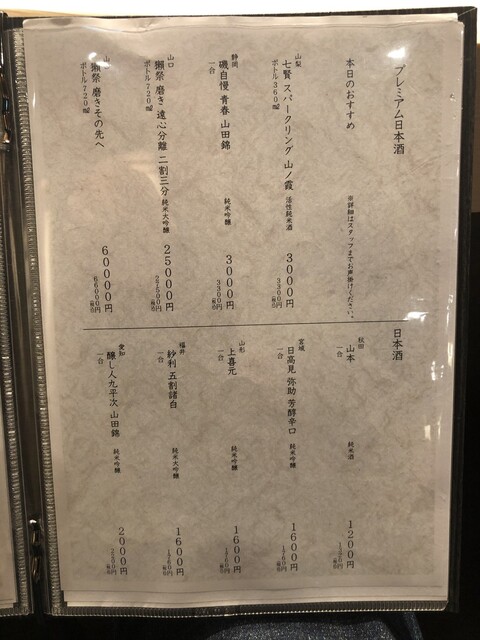 プレミアム日本酒
本日のおすすめ
※詳細はスタッフまでお声掛けください。
山梨
七賢 スパークリング 山ノ霞 活性純米酒 3000円
ボトル360㎖ 3300円(税込)
静岡
磯自慢 青春 山田錦 純米吟醸 3000円
一合 3300円(税込)
山口
獺祭 磨き 遠心分離 二割三分 純米大吟醸 25000円
ボトル720㎖ 27500円(税込)
山口
獺祭 磨きその先へ 60000円
ボトル720㎖ 66000円(税込)
日本酒
秋田
山本 純米酒 1200円
一合 1320円(税込)
宮城
日高見 弥助 芳醇辛口 純米吟醸 1600円
一合 1760円(税込)
山形
上喜元 純米吟醸 1600円
一合 1760円(税込)
福井
紗利 五割諸白 純米大吟醸 1600円
一合 1760円(税込)
愛知
醸し人九平次 山田錦 純米吟醸 2000円
一合 2200円(税込)